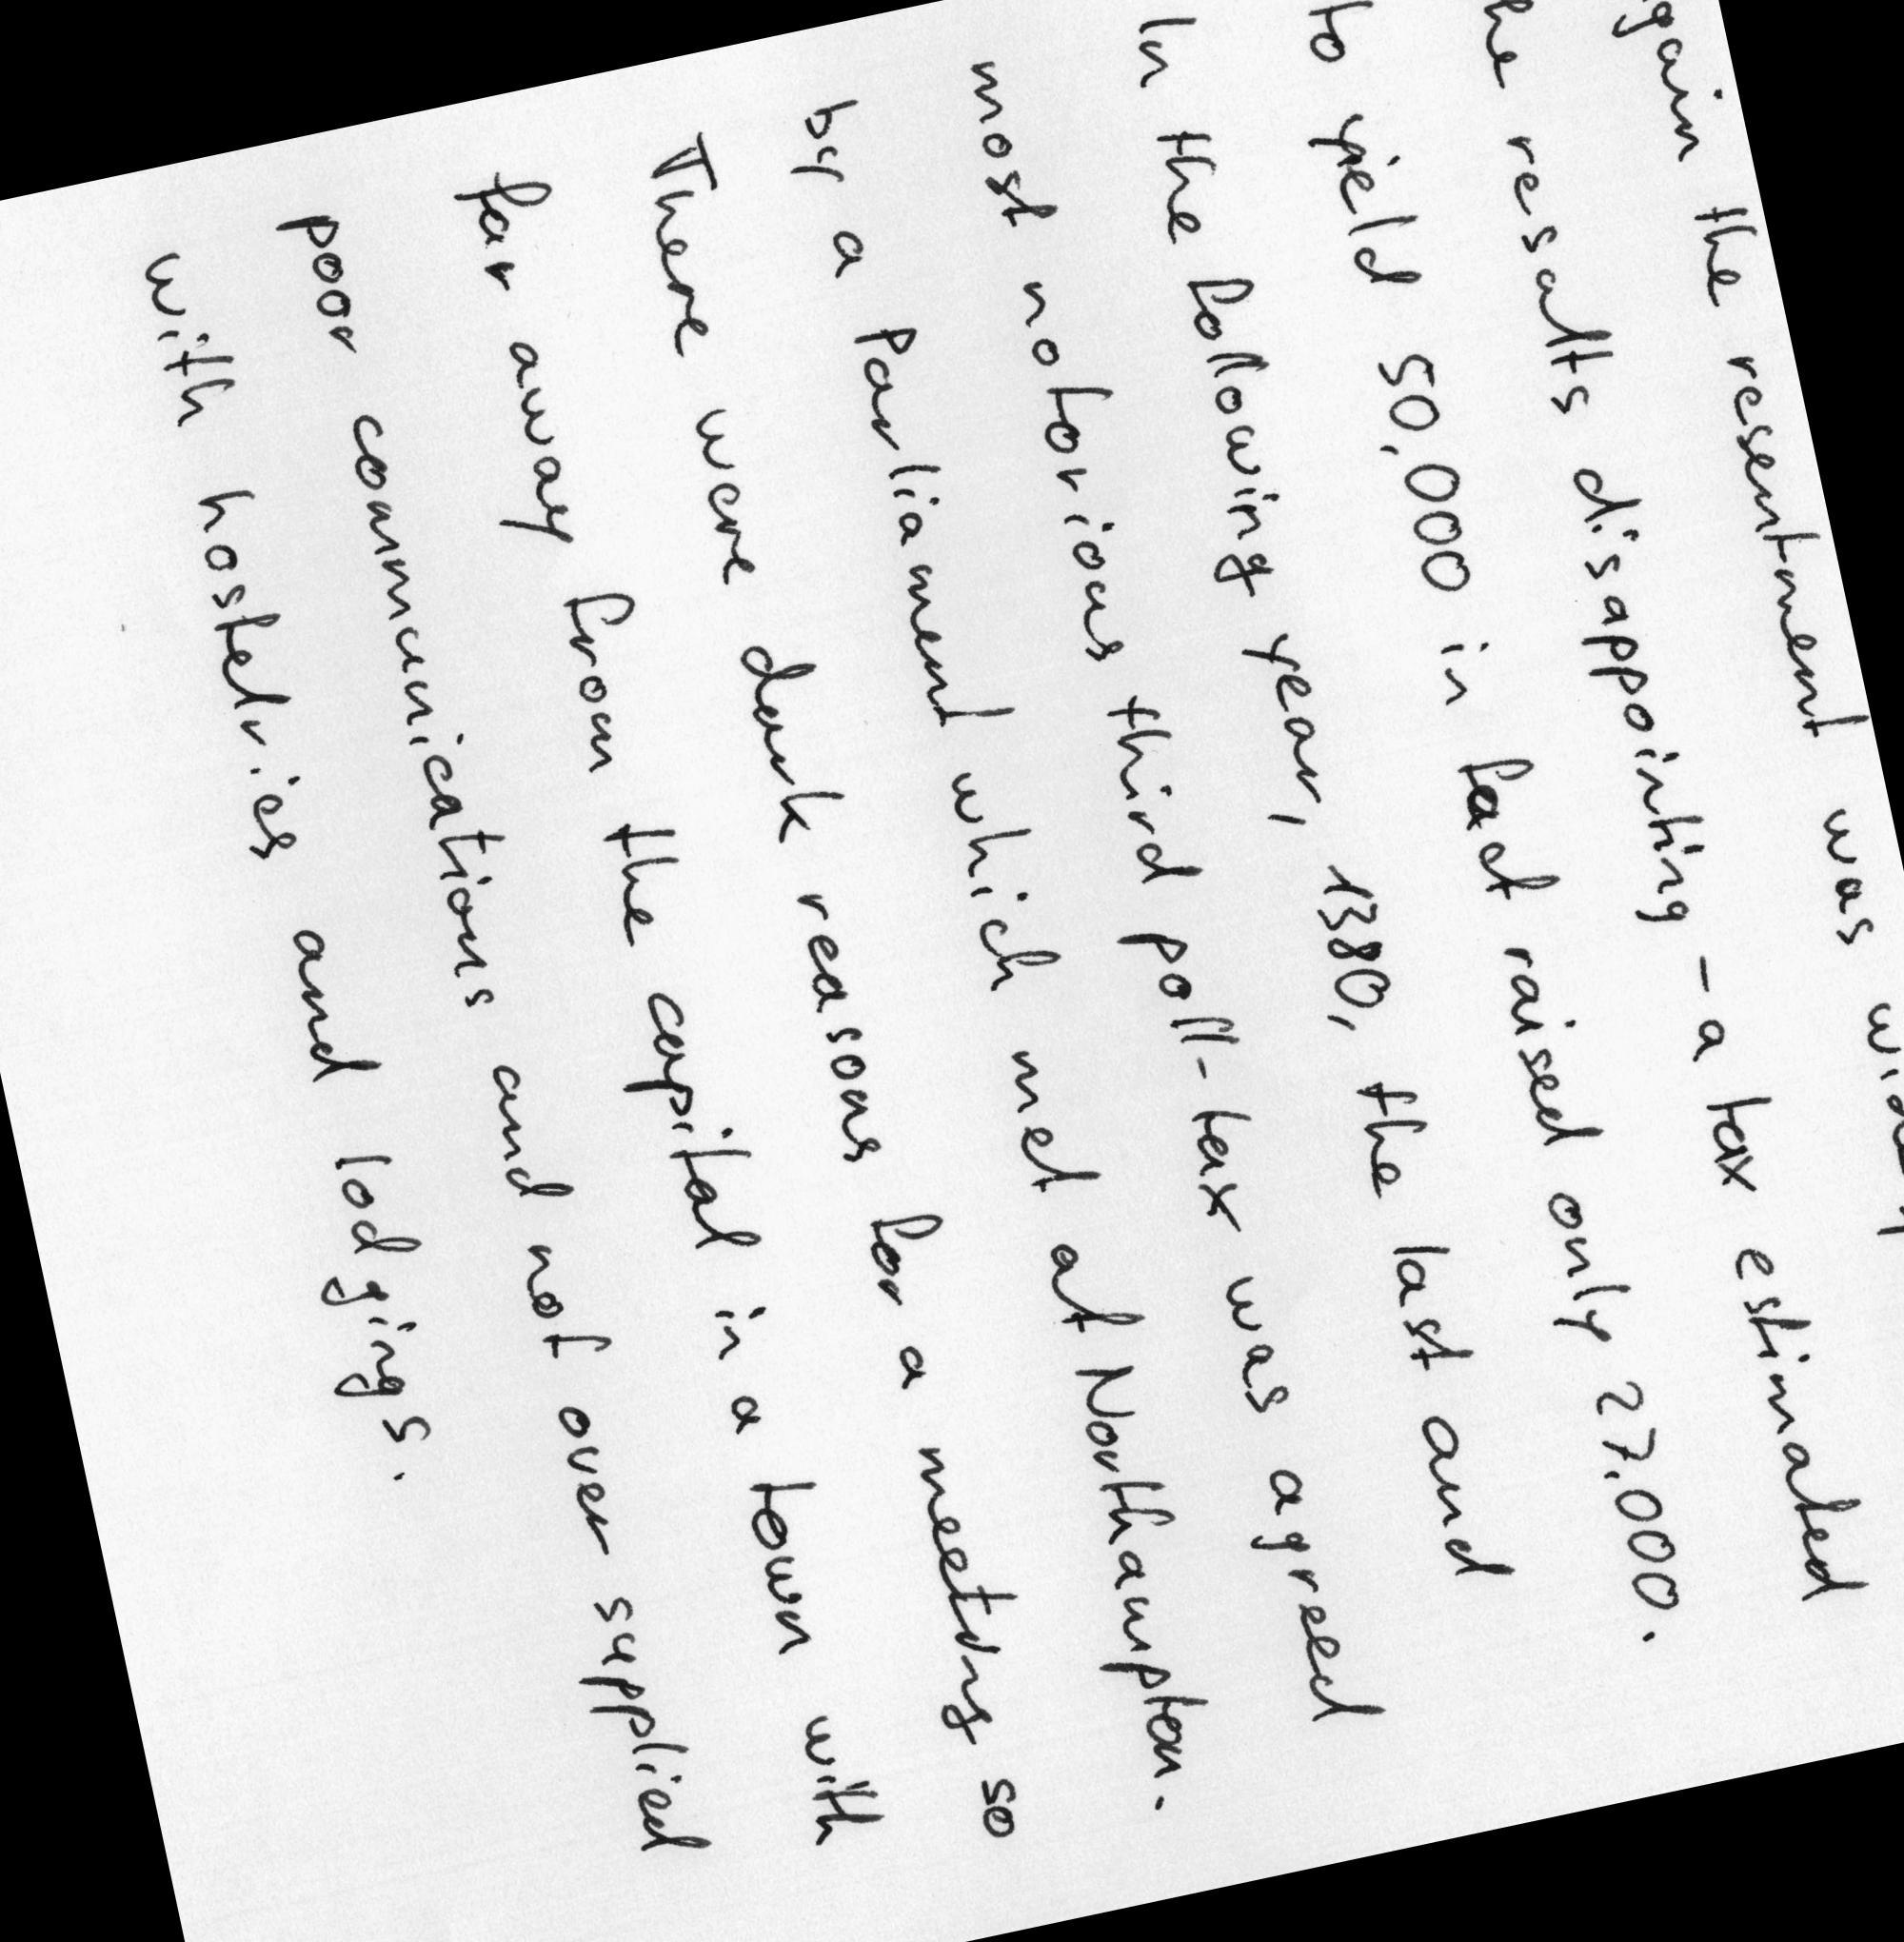 the resentment was
results disappointing - a tax estimated
to yield 50,000 in fact raised only 27,000.
In the following year, 1380, the last and
most notorious third poll-tax was agreed
by a Parliament which met at Northampton.
There were dark reasons for a meeting so
far away from the capital in a town with
poor communications and not over supplied
with hostelries and lodgings.